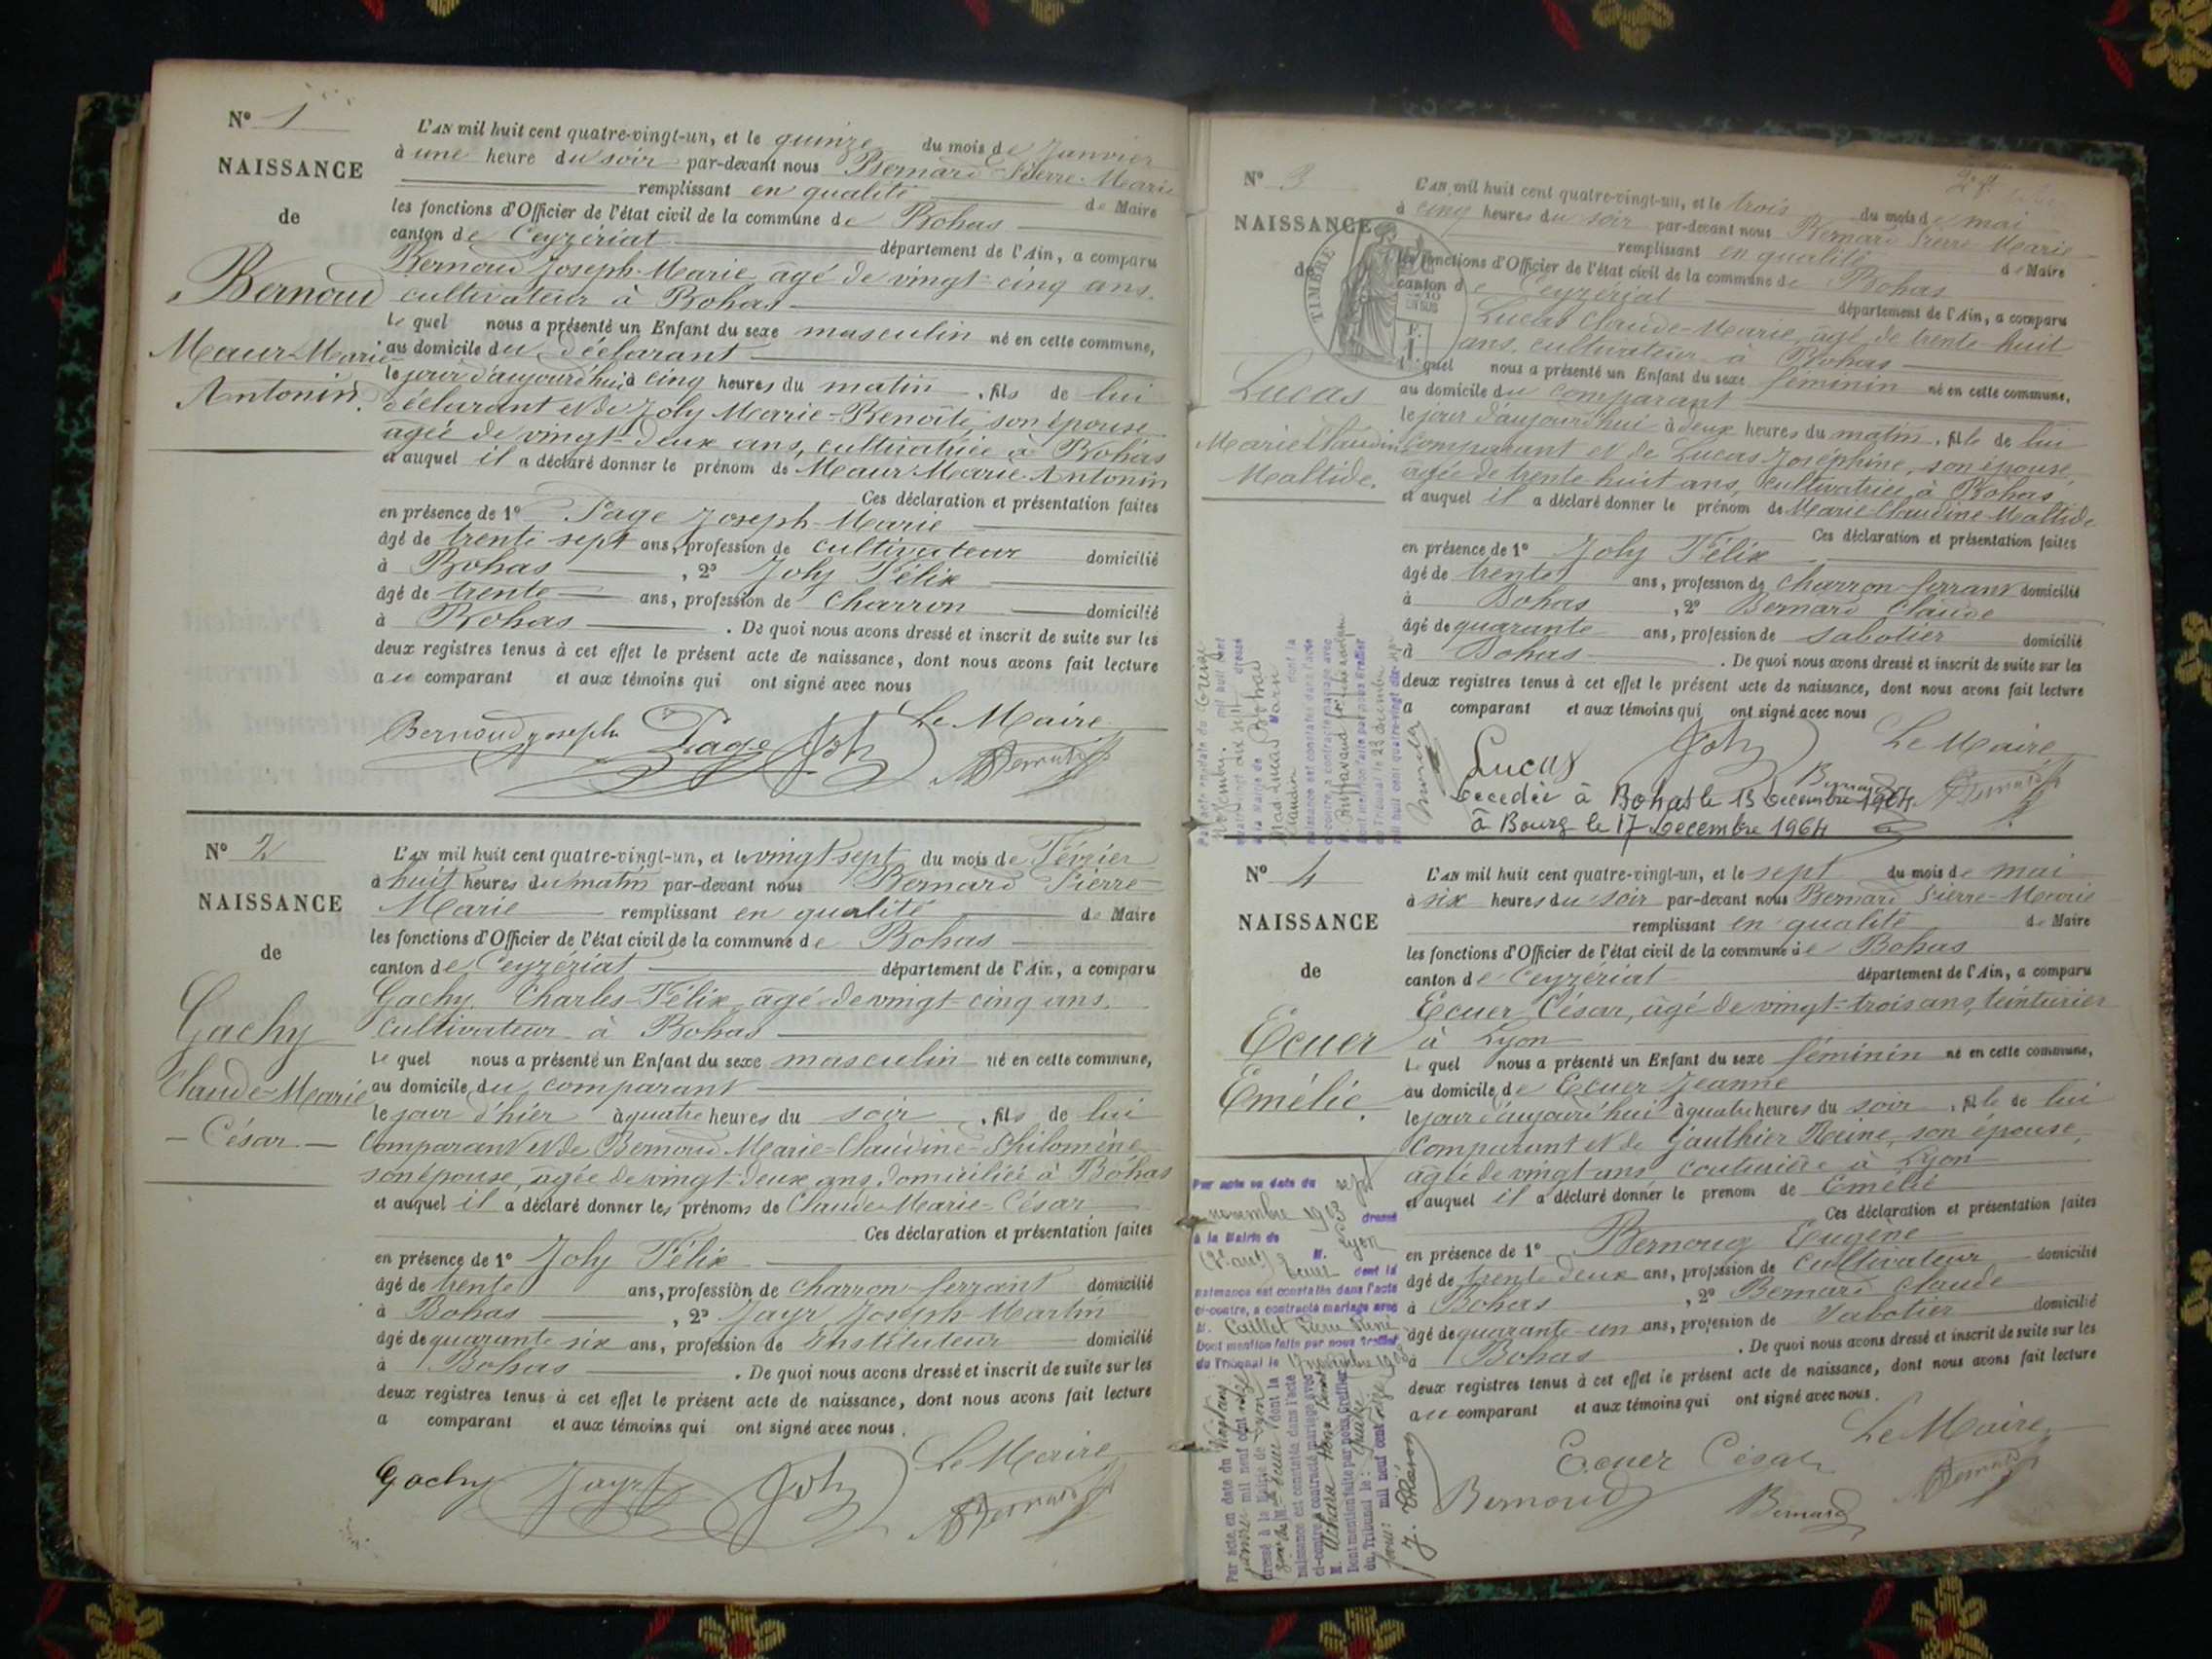 N° 1
NAISSANCE
de
Bernoud
Maur-Marie
Antonin.
L'AN mil huit cent quatre-vingt-un, et le quinze du mois de Janvier
à une heure du soir par-devant nous Bernard Pierre-Marie
remplissant en qualité de Maire
les fonctions d'Officier de l'état civil de la commune de Bohas
canton de Ceyzériat département de l'Ain, a comparu
Bernoud Joseph-Marie âgé de vingt-cinq ans.
cultivateur à Bohas
le quel nous a présenté un Enfant du sexe masculin né en cette commune,
au domicile du déclarant
le jour d'aujourd'hui à cinq heures du matin, fils de lui
déclarant et de Joly Marie-Benoîte, son épouse
âgée de vingt-deux ans, cultivatrice à Bohas
et auquel il a déclaré donner le prénom de Maur-Marie-Antonin
Ces déclaration et présentation faites
en présence de 1° Page Joseph-Marie
âgé de trente sept ans, profession de cultivateur domicilié
à Bohas, 2° Joly Félix
âgé de trente ans, profession de charron domicilié
à Bohas. De quoi nous avons dressé et inscrit de suite sur les
deux registres tenus à cet effet le présent acte de naissance, dont nous avons fait lecture
au comparant et aux témoins qui ont signé avec nous
Le Maire
Bernoud joseph Page Joly Bernard
N° 2
NAISSANCE
de
Gachy
Claude-Marie
- César -
L'AN mil huit cent quatre-vingt-un, et le vingt sept du mois de Février
à huit heures du matin par-devant nous Bernard Pierre
Marie remplissant en qualité de Maire
les fonctions d'Officier de l'état civil de la commune de Bohas
canton de Ceyzériat département de l'Ain, a comparu
Gachy Charles-Félix, âgé de vingt-cinq ans.
cultivateur à Bohas
le quel nous a présenté un Enfant du sexe masculin né en cette commune,
au domicile du comparant
le jour d'hier à quatre heures du soir, fils de lui
comparant et de Bernoud Marie-Claudine-Philomène
son épouse, âgée de vingt-deux ans, domiciliée à Bohas
et auquel il a déclaré donner les prénoms de Claude-Marie-César
Ces déclaration et présentation faites
en présence de 1° Joly Félix
âgé de trente ans, profession de charron-ferrant domicilié
à Bohas, 2° Jayr Joseph-Martin
âgé de quarante six ans, profession de Instituteur domicilié
à Bohas. De quoi nous avons dressé et inscrit de suite sur les
deux registres tenus à cet effet le présent acte de naissance, dont nous avons fait lecture
a comparant et aux témoins qui ont signé avec nous.
Le Maire
Gachy Jayr Joly Bernard
N° 3
NAISSANCE
de
TIMBRE
Lucas
Marie Claudine
Maltide.
L'AN mil huit cent quatre-vingt-un, et le trois du mois de mai
à cinq heures du soir par-devant nous Bernard Pierre Marie
remplissant en qualité de Maire
les fonctions d'Officier de l'état civil de la commune de Bohas
canton de Ceyzériat département de l'Ain, a comparu
Lucas Claude-Marie, âgé de trente huit
ans, cultivateur à Bohas
le quel nous a présenté un Enfant du sexe féminin né en cette commune,
au domicile du comparant
le jour d'aujourd'hui à deux heures du matin, fille de lui
comparant et de Lucas Joséphine, son épouse,
âgée de trente huit ans, cultivatrice à Bohas
et auquel il a déclaré donner le prénom de Marie-Claudine-Maltide
Ces déclaration et présentation faites
en présence de 1° Joly Félix
âgé de trente ans, profession de charron-ferrant domicilié
à Bohas, 2° Bernard Claude
âgé de quarante ans, profession de sabotier domicilié
à Bohas. De quoi nous avons dressé et inscrit de suite sur les
deux registres tenus à cet effet le présent acte de naissance, dont nous avons fait lecture
a comparant et aux témoins qui ont signé avec nous
Lucas Joly Le Maire
Bernard Bernard
Décédée à Bohas le 15 Décembre 1964
à Bourg le 17 Décembre 1964
N° 4
NAISSANCE
de
Ecuer
Emélie.
L'AN mil huit cent quatre-vingt-un, et le sept du mois de mai
à six heures du soir par-devant nous Bernard Pierre-Marie
remplissant en qualité de Maire
les fonctions d'Officier de l'état civil de la commune de Bohas
canton de Ceyzériat département de l'Ain, a comparu
Ecuer César, âgé de vingt-trois ans, teinturier
à Lyon
le quel nous a présenté un Enfant du sexe féminin né en cette commune,
au domicile de Ecuer Jeanne
le jour d'aujourd'hui à quatre heures du soir, fille de lui
comparant et de Gauthier Reine, son épouse,
âgée de vingt ans couturière à Lyon
et auquel il a déclaré donner le prénom de Emélie
Ces déclaration et présentation faites
en présence de 1° Bernoud Eugène
âgé de trente deux ans, profession de cultivateur domicilié
à Bohas, 2° Bernard Claude
âgé de quarante-un ans, profession de Sabotier domicilié
à Bohas. De quoi nous avons dressé et inscrit de suite sur les
deux registres tenus à cet effet le présent acte de naissance, dont nous avons fait lecture
au comparant et aux témoins qui ont signé avec nous.
Le Maire
Ecuer César
Bernoud Bernard Bernard
Par acte en date du sept
novembre 1903 dressé
à la Mairie de Lyon
M. Ecuer dont la
naissance est constatée dans l'acte
ci-contre, a contracté mariage avec
M. Caillet Pierre René
Dont mention faite par nous Greffier
du Tribunal le 17 novembre 1903
Par acte en date du
mil neuf cent
dressé à la Mairie de Lyon
dont la
naissance est constatée dans l'acte
ci-contre a contracté mariage avec
M.
Dont mention faite par nous, Greffier
du Tribunal le
mil neuf cent